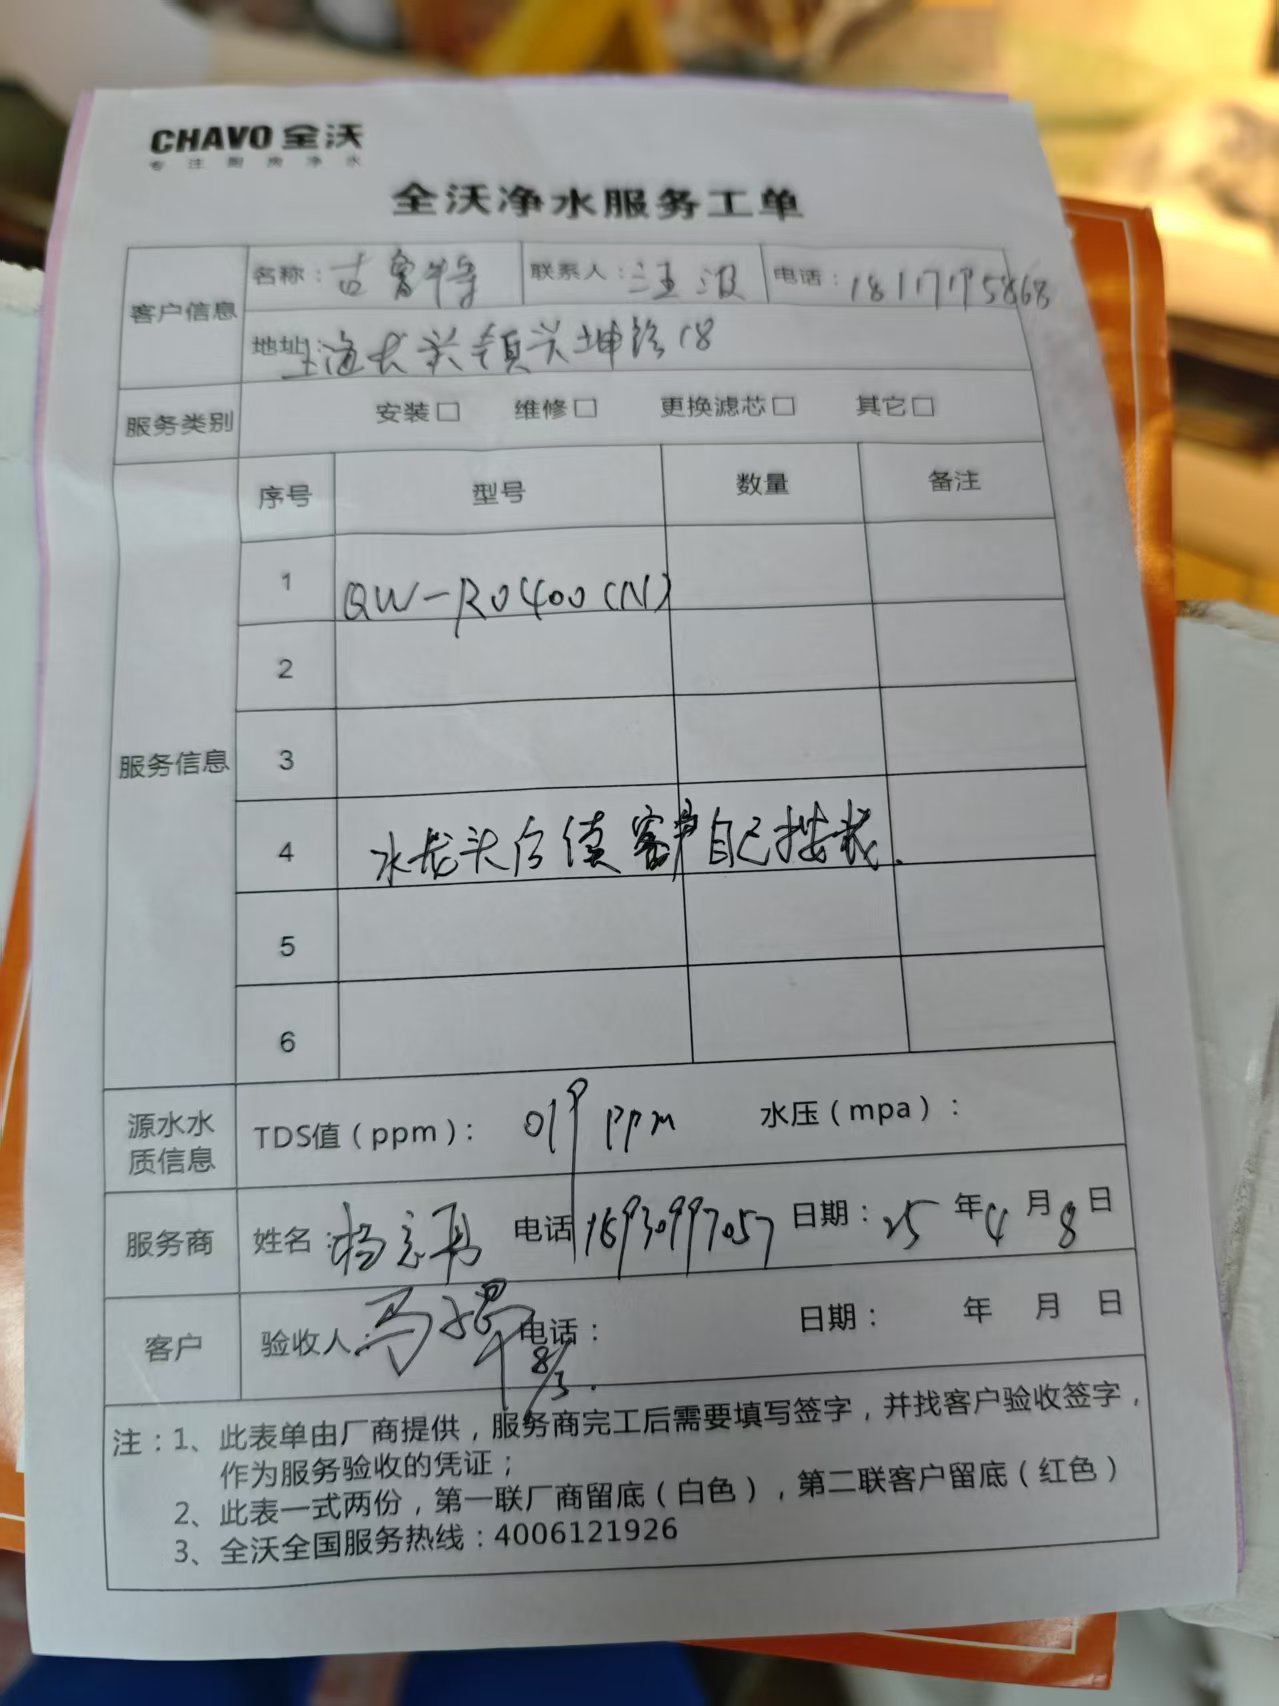 CHAVO 全沃
专注厨房净水
全沃净水服务工单
客户信息 名称：古鲁特 联系人：汪波 电话：
地址 上海长兴镇兴坤路18
服务类别 安装□ 维修□ 更换滤芯□ 其它□
服务信息
序号 型号 数量 备注
1 QW-RO400(N)
2
3
4 水龙头后续客户自己按装.
5
6
源水水质信息 TDS值（ppm）： 019 ppm 水压（mpa）：
服务商 姓名： 电话 日期：25年4月8日
客户 验收人： 电话： 日期： 年 月 日
8/3.
注：1、此表单由厂商提供，服务商完工后需要填写签字，并找客户验收签字，
作为服务验收的凭证；
2、此表一式两份，第一联厂商留底（白色），第二联客户留底（红色）
3、全沃全国服务热线：4006121926